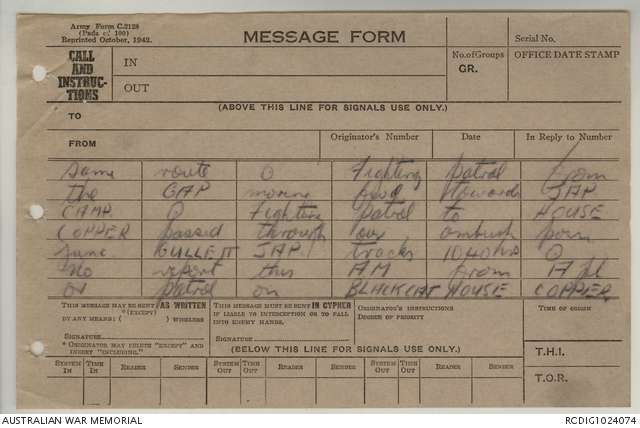 Army Form C.2128
(Pads of 100)
Reprinted October, 1942.
MESSAGE FORM
Serial No.
CALL AND INSTRUCTIONS
IN
OUT
No. of Groups
GR.
OFFICE DATE STAMP
(ABOVE THIS LINE FOR SIGNALS USE ONLY.)
TO
FROM
Originator's Number
Date
In Reply to Number
Same route O Fighting patrol from
the GAP moving fwd towards JAP
CAMP O Fighting patrol to HOUSE
COPPER passed through our ambush posn
junc GULLETT JAP tracks 1040 hrs O
No report this AM from A pl
on patrol on BLACKCAT HOUSE COPPER
THIS MESSAGE MAY BE SENT AS WRITTEN
*(EXCEPT)
BY ANY MEANS. ( ) WIRELESS
SIGNATURE
* ORIGINATOR MAY DELETE "EXCEPT" AND INSERT "INCLUDING."
THIS MESSAGE MUST BE SENT IN CYPHER
IF LIABLE TO INTERCEPTION OR TO FALL INTO ENEMY HANDS.
SIGNATURE
ORIGINATOR'S INSTRUCTIONS
DEGREE OF PRIORITY
TIME OF ORIGIN
(BELOW THIS LINE FOR SIGNALS USE ONLY.)
T.H.I.
SYSTEM IN
TIME IN
READER
SENDER
SYSTEM OUT
TIME OUT
READER
SENDER
SYSTEM OUT
TIME OUT
READER
SENDER
T.O.R.
AUSTRALIAN WAR MEMORIAL
RCDIG1024074